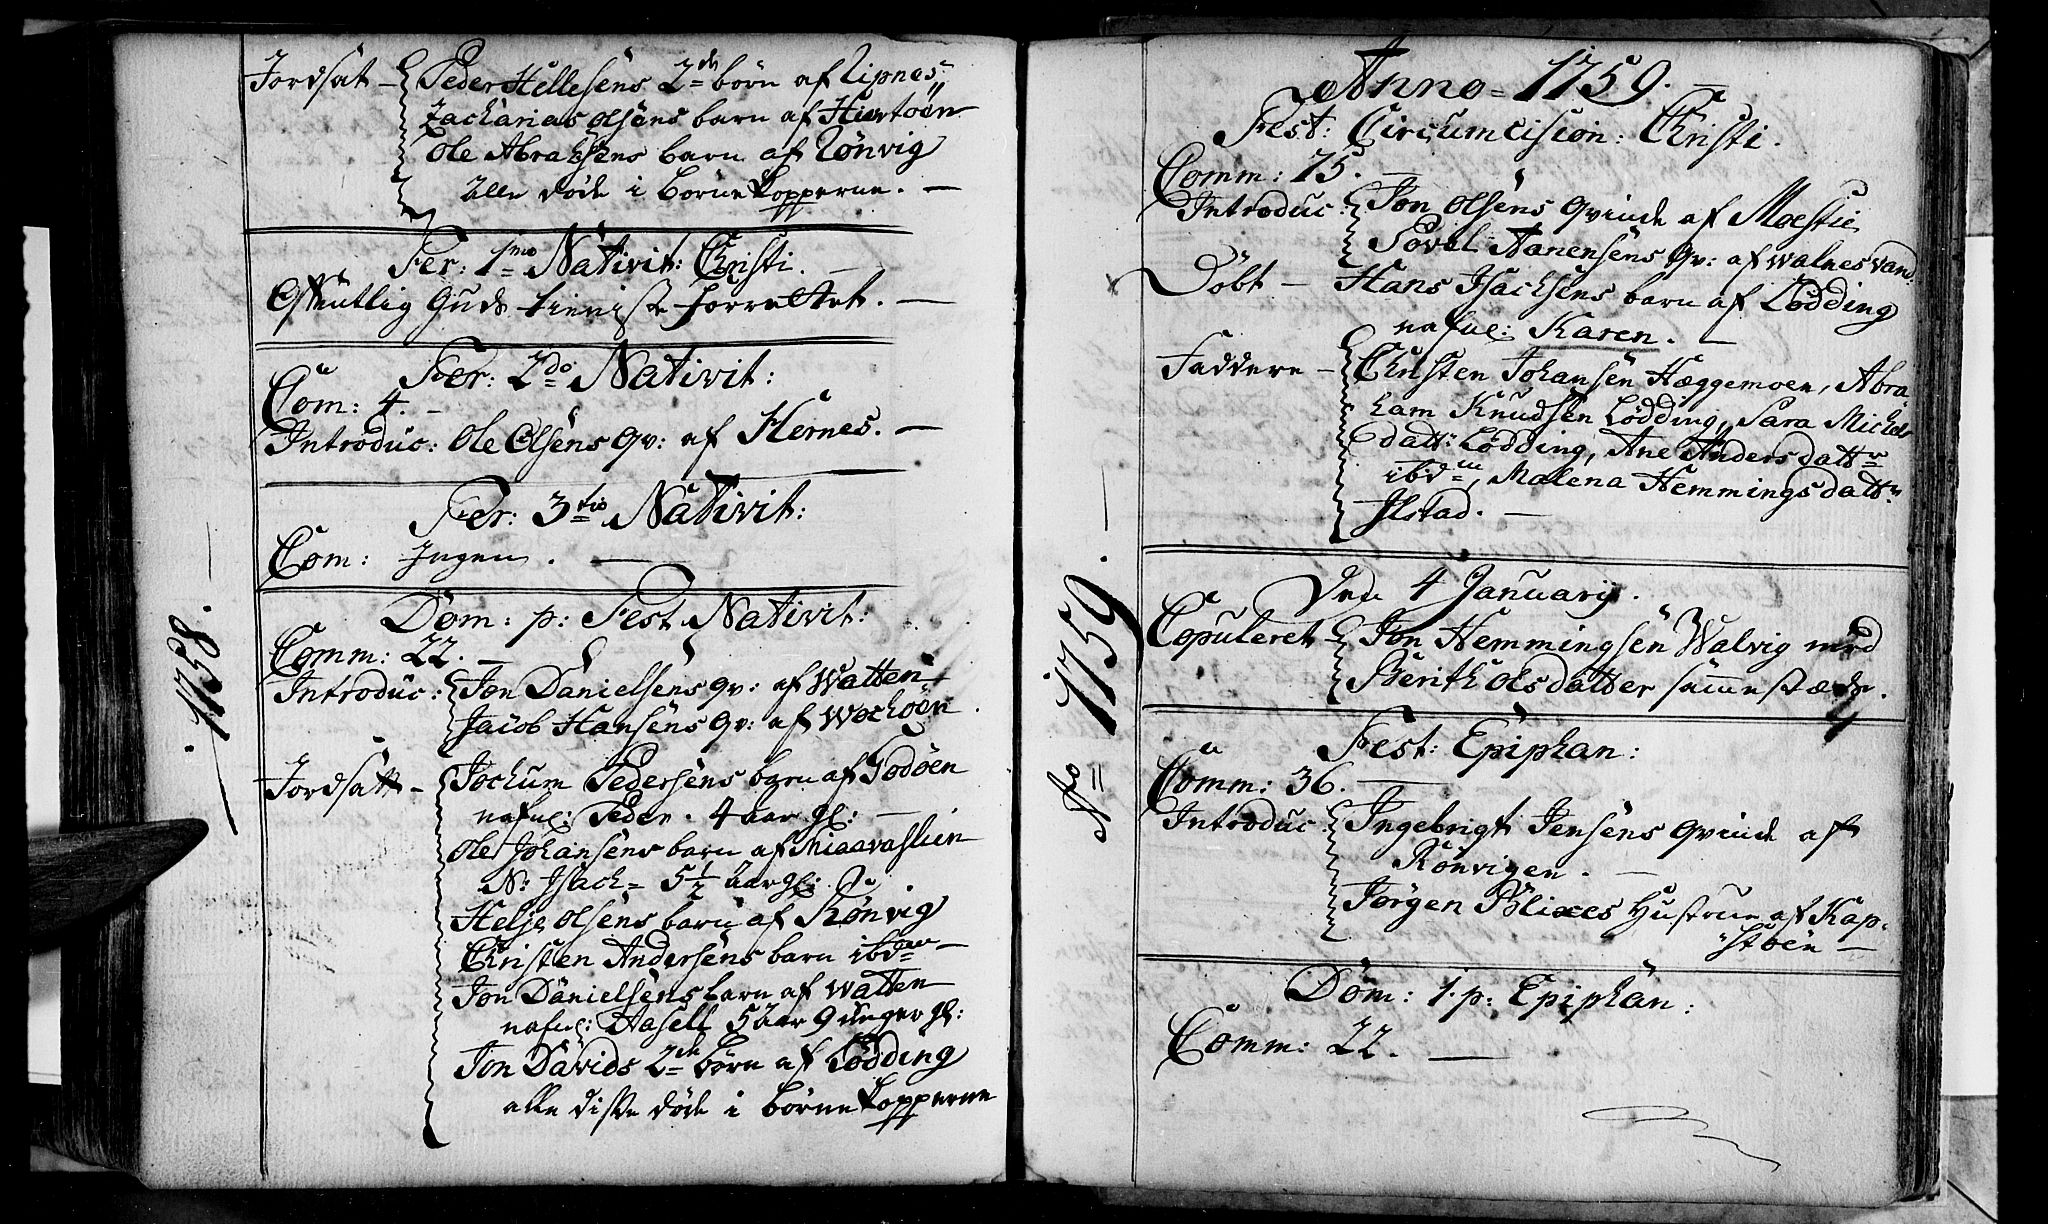 1758.
Jordsat – Peder Hellesens 2de börn af Ripnes
Zacharias Olsens barn af Hiertöen
Ole Abrahsens barn af Rönvig
Alle döde i Börne Kopperne. –
Fer: 1mo Nativit: Christi. –
Offentlig Guds tieniste forrettet. –
Fer: 2do Nativit:
Com: 4. –
Introduc: Ole Olsens qv: af Hernes. –
Fer: 3tio Nativit:
Com: Ingen. –
Dom: p: Fest Nativit:
Comm: 22. –
Introduc: Jon Danielsens qv: af Watten
Jacob Hansens qv: af Wochöen.
Jordsatt – Jochum Pedersens barn af Godöen
nafnl: Peder. 4 aar gl: –
Ole Johansens barn af Miaavaslien
N: Isach = 5 1/2 aar gl:
Helje Olsens barn af Rönvig
Christen Andersens barn ibdm –
Jon Danielsens barn af Watten
nafnl: Hasell 5 aar 9 uger gl:
Jon Davids 2de börn af Lödding
alle disse döde i Börne Kopperne
Ao = 1759. –
Anno = 1759. –
Fest: Circumcision: Christi.
Comm: 75. –
Introduc: Jon Olsens qvinde af Moestie
Povel Aanensens qv: af Walnesvand:
Döbt – Hans Isachsens barn af Lödding
nafnl: Karen. –
Faddere – Christen Johansen Hæggemoen, Abra-
ham Knudsen Lödding, Sara Michels
datt: Lödding, Ane Anders dattr
ibdm, Malena Hemmings dattr
Ilstad. –
Den 4 Januarij.
Copuleret – Jon Hemmingsen Walvig med
Berith Olsdatter sammestæds.
Fest: Epiphan:
Comm: 36. –
Introduc: Ingebrigt Jensens qvinde af
Rönvigen. –
Jörgen Blixes Hustrue af Kap-
stöen –
Dom: 1. p: Epiphan:
Comm: 22. –